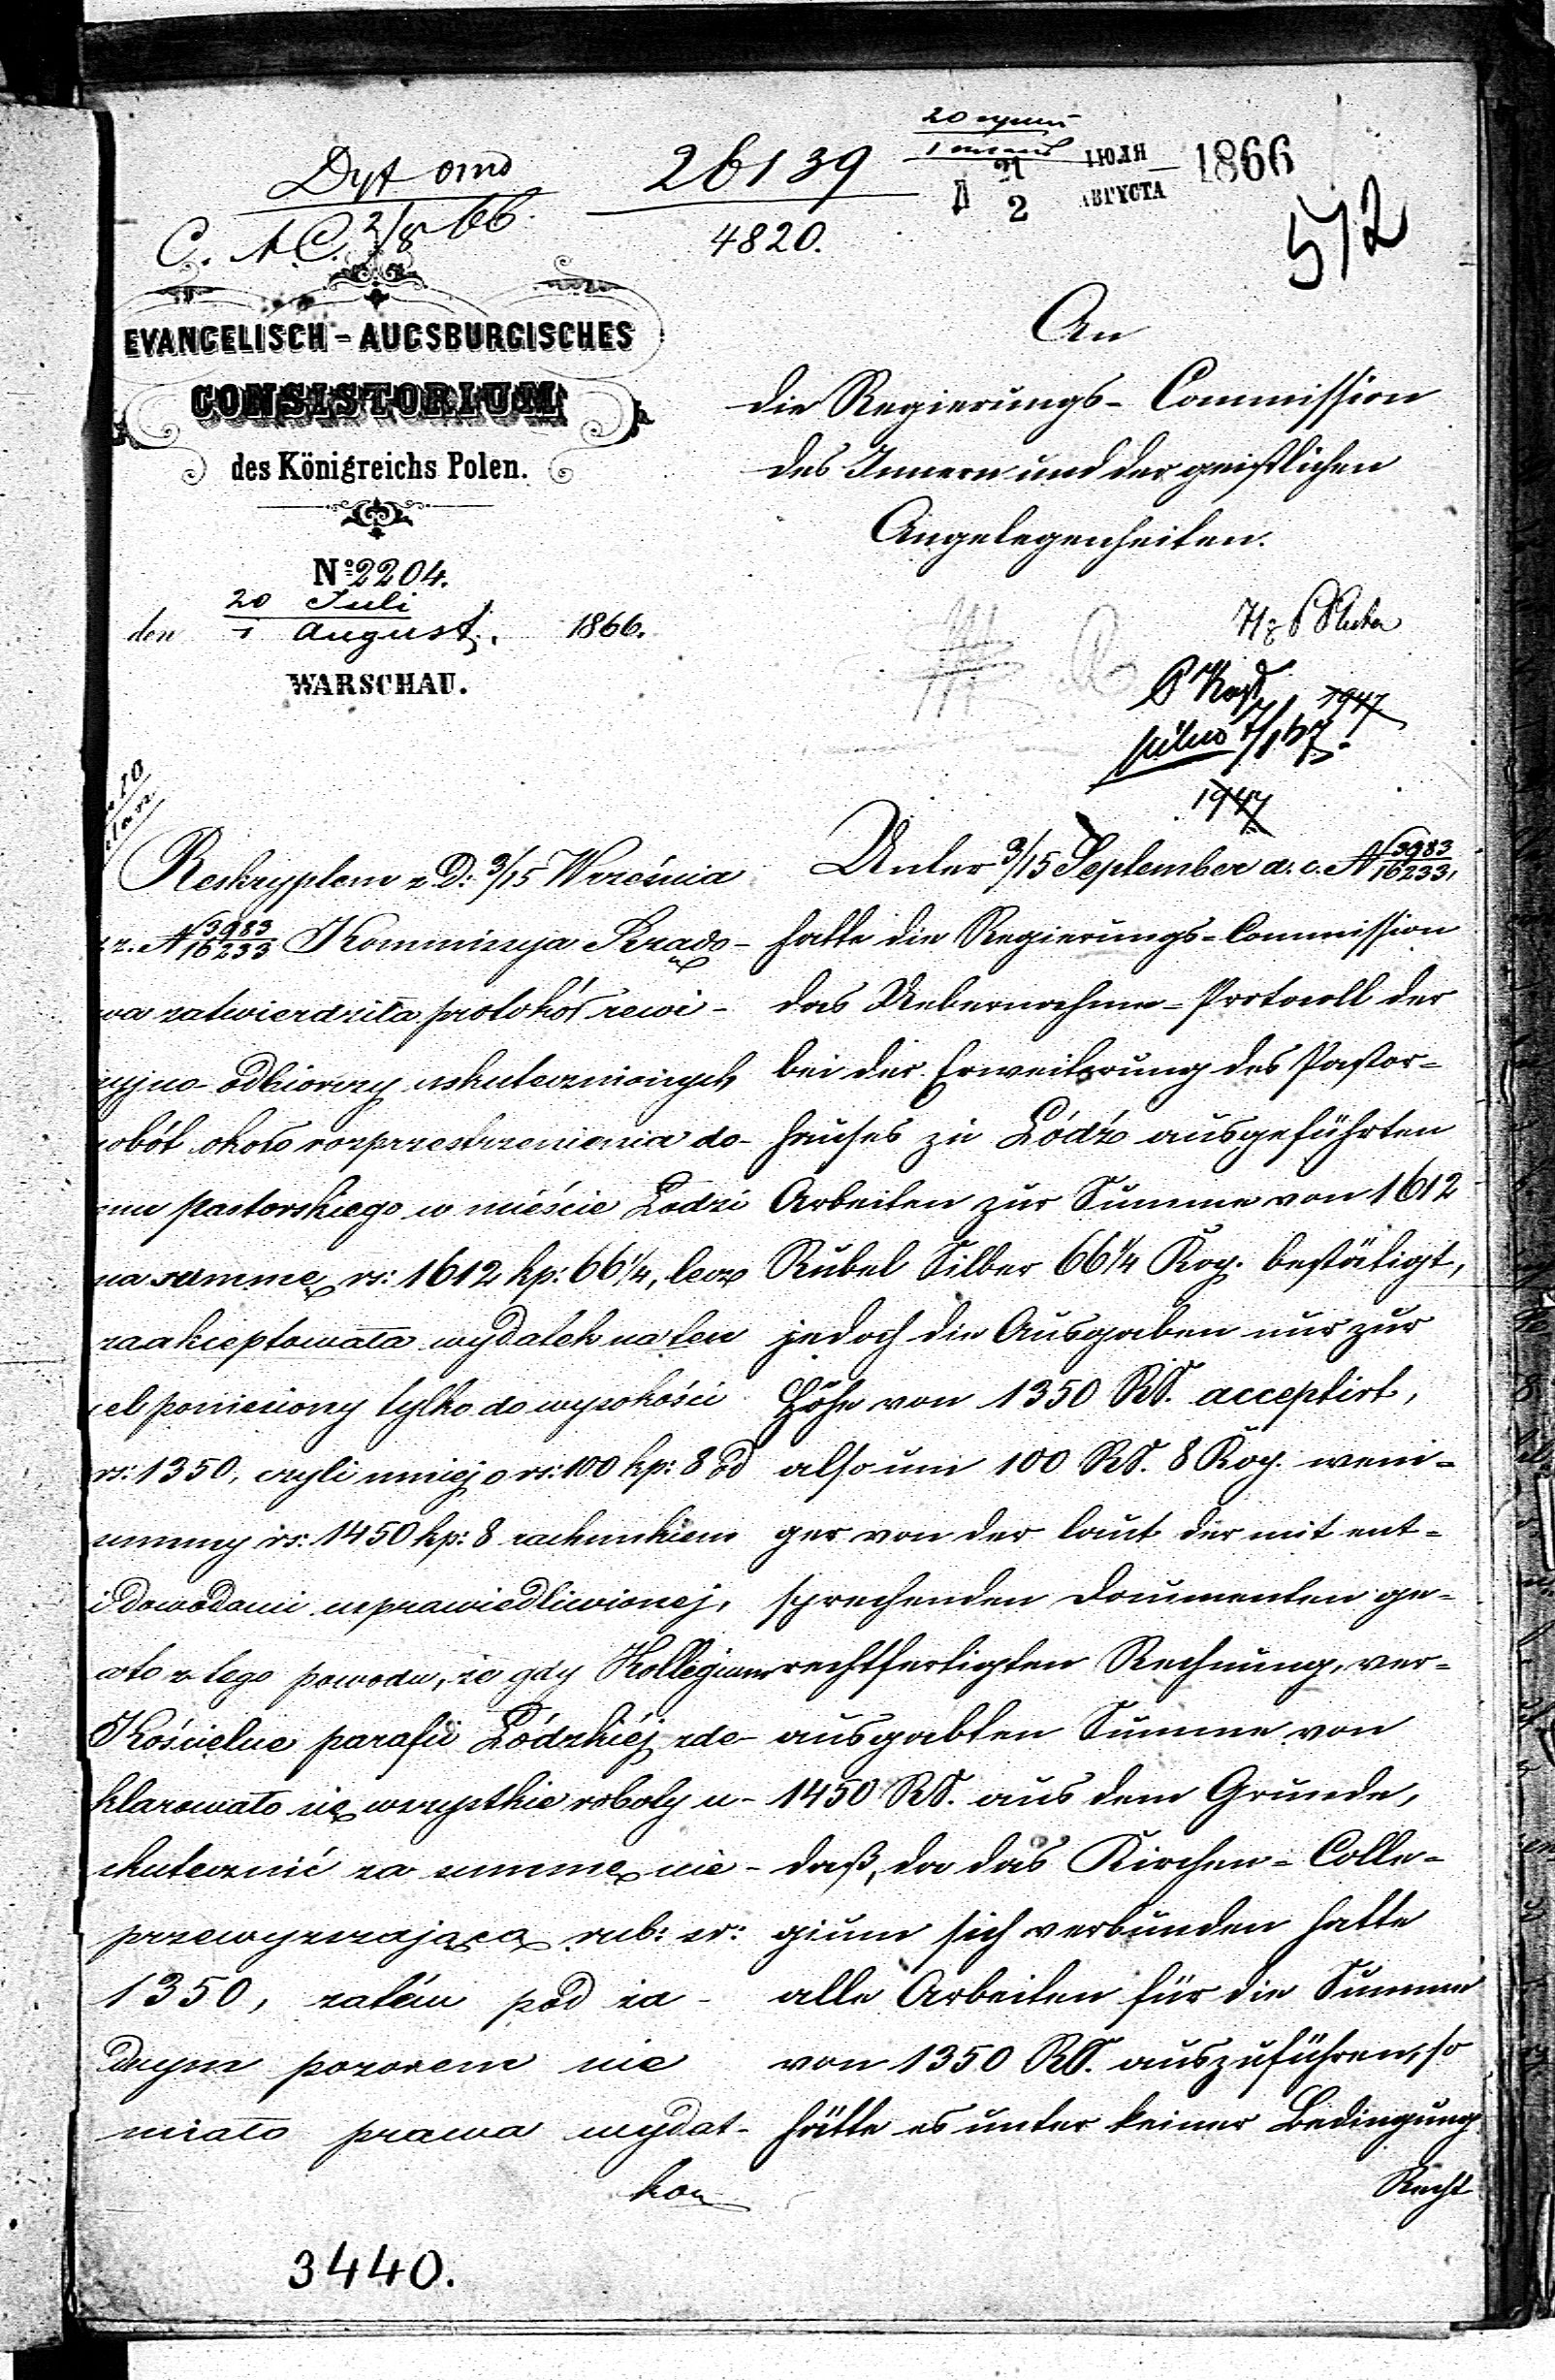 26139
4820.
21 ІЮЛЯ
2 АВГУСТА
1866
572
C. A. C. 2/8 66.
EVANGELISCH-AUGSBURGISCHES
CONSISTORIUM
des Königreichs Polen.
No 2204.
20 Juli
den 1 August. 1866.
WARSCHAU.
An
die Regierungs-Commission
des Innern und der geistlichen
Angelegenheiten.
1947
1947
Reskryptem z D: 3/15 Września
N 3983/16233 Kommissya Rządo-
wa zatwierdziła protokół rewi-
zyjno-odbiorczy uskutecznionych
robót około rozprzestrzenienia do-
mu pastorskiego w mieście Łodzi
na summę rs: 1612 kp: 66 1/4, lecz
zaakceptowała wydatek na ten
cel poniesiony tylko do wysokości
rs: 1350, czyli mniej o rs: 100 kp: 8 od
summy rs: 1450 kp: 8 rachunkiem
i dowodami usprawiedliwionej,
a to z tego powodu, że gdy Kollegium
Kościelne parafii Łódzkiéj zde-
klarowało się wszystkie roboty u-
skutecznić za summę nie-
przewyższającą rub: sr:
1350, zatém pod ża-
dnym pozorem nie
miało prawa wydat-
ków
Unter 3/15 September a. c. N 3983/16233,
hatte die Regierungs-Commission
das Uebernahme-Protocoll der
bei der Erweiterung des Pastor-
hauses zu Łódź ausgeführten
Arbeiten zur Summe von 1612
Rubel Silber 66 1/4 Kop. bestätigt,
jedoch die Ausgaben nur zur
Höhe von 1350 RS. acceptirt,
also um 100 RS. 8 Kop. weni-
ger von der laut der mit ent-
sprechenden Documenten ge-
rechtfertigten Rechnung, ver-
ausgabten Summe von
1450 RS. aus dem Grunde,
daß, da das Kirchen-Colle-
gium sich verbunden hatte
alle Arbeiten für die Summe
von 1350 RS. auszuführen, so
hätte es unter keiner Bedingung
Recht
3440.